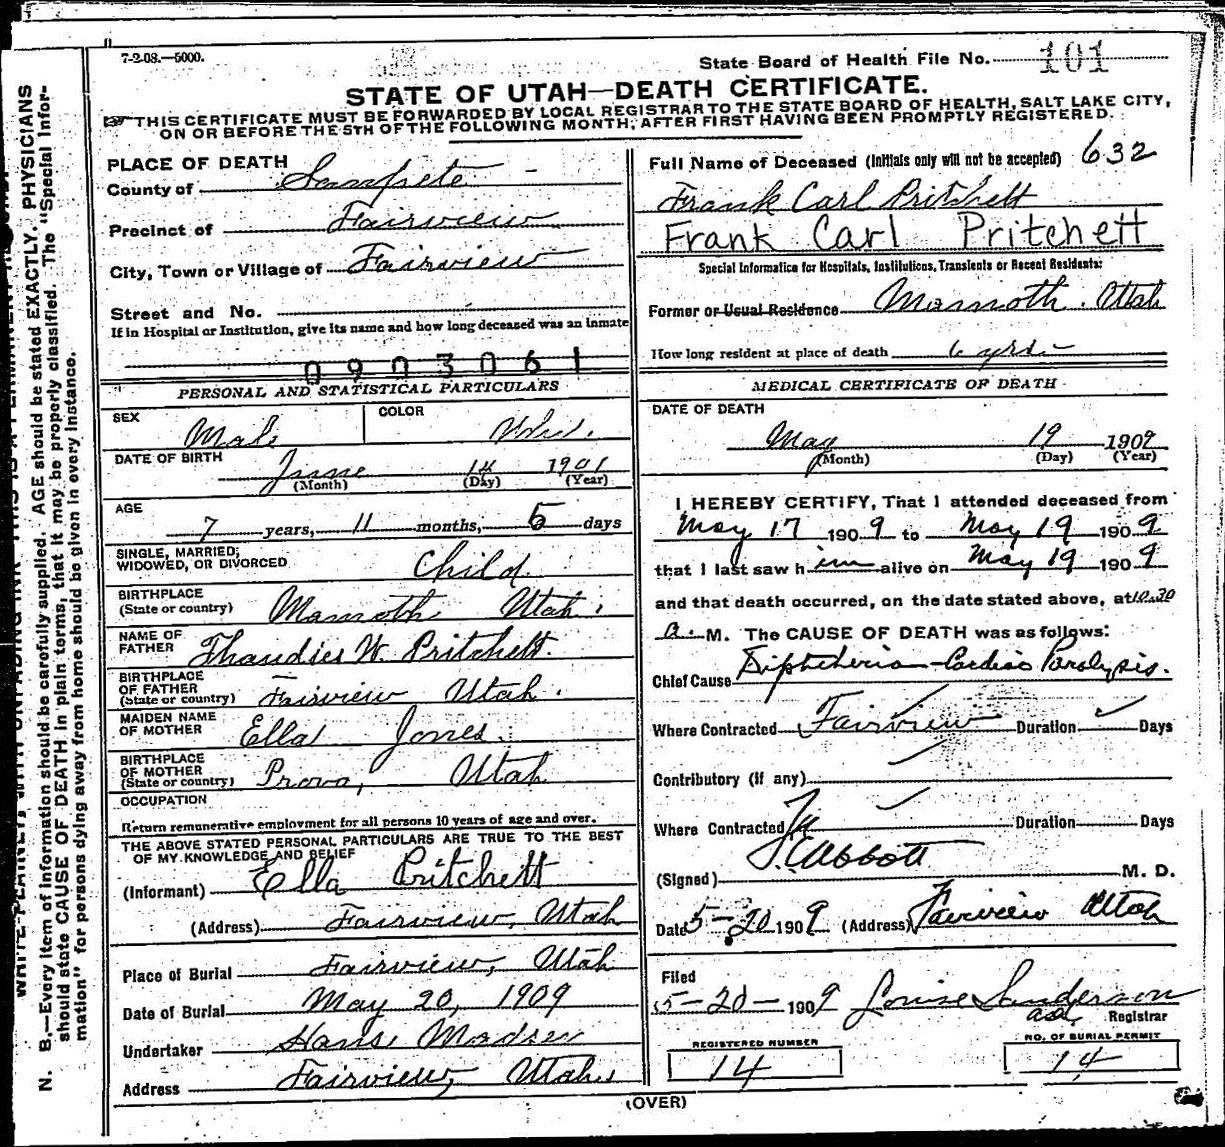 7-2-08.—5000.
State Board of Health File No. 101
STATE OF UTAH—DEATH CERTIFICATE.
THIS CERTIFICATE MUST BE FORWARDED BY LOCAL REGISTRAR TO THE STATE BOARD OF HEALTH, SALT LAKE CITY,
ON OR BEFORE THE 5TH OF THE FOLLOWING MONTH, AFTER FIRST HAVING BEEN PROMPTLY REGISTERED.
PLACE OF DEATH
County of Sanpete
Precinct of Fairview
City, Town or Village of Fairview
Street and No.
If in Hospital or Institution, give its name and how long deceased was an inmate
0903061
PERSONAL AND STATISTICAL PARTICULARS
SEX Male COLOR
DATE OF BIRTH June 14 1901
(Month) (Day) (Year)
AGE 7 years, 11 months, 5 days
SINGLE, MARRIED;
WIDOWED, OR DIVORCED Child
BIRTHPLACE
(State or country) Mamoth Utah.
NAME OF
FATHER W. Pritchett.
BIRTHPLACE
OF FATHER
(State or country) Fairview Utah.
MAIDEN NAME
OF MOTHER Ella Jones.
BIRTHPLACE
OF MOTHER
(State or country) Provo, Utah
OCCUPATION
Return remunerative employment for all persons 10 years of age and over.
THE ABOVE STATED PERSONAL PARTICULARS ARE TRUE TO THE BEST
OF MY KNOWLEDGE AND BELIEF
(Informant) Ella Pritchett
(Address) Fairview, Utah
Place of Burial Fairview, Utah
Date of Burial May 20, 1909
Undertaker Hans Madsen
Address Fairview, Utah.
Full Name of Deceased (Initials only will not be accepted) 632
Frank Carl Pritchett
Frank Carl Pritchett
Special Information for Hospitals, Institutions, Transients or Recent Residents:
Former or Usual Residence Mamoth. Utah
How long resident at place of death 6 yrs.
MEDICAL CERTIFICATE OF DEATH
DATE OF DEATH
May 19 1909
(Month) (Day) (Year)
I HEREBY CERTIFY, That I attended deceased from
May 17 1909 to May 19 1909
that I last saw him alive on May 19 1909
and that death occurred, on the date stated above, at 10.30
a. M. The CAUSE OF DEATH was as follows:
Chief Cause Diphtheria—Cardiac Paralysis.
Where Contracted Fairview Duration Days
Contributory (if any)
Where Contracted Duration Days
(Signed) Abbott M. D.
Date 5-20 1909 (Address) Fairview Utah
Filed
5-20-1909 Louise Sanderson
Registrar
REGISTERED NUMBER
14
NO. OF BURIAL PERMIT
14
(OVER)
N. B.—Every item of information should be carefully supplied. AGE should be stated EXACTLY. PHYSICIANS
should state CAUSE OF DEATH in plain terms, that it may be properly classified. The "Special Infor-
mation" for persons dying away from home should be given in every instance.